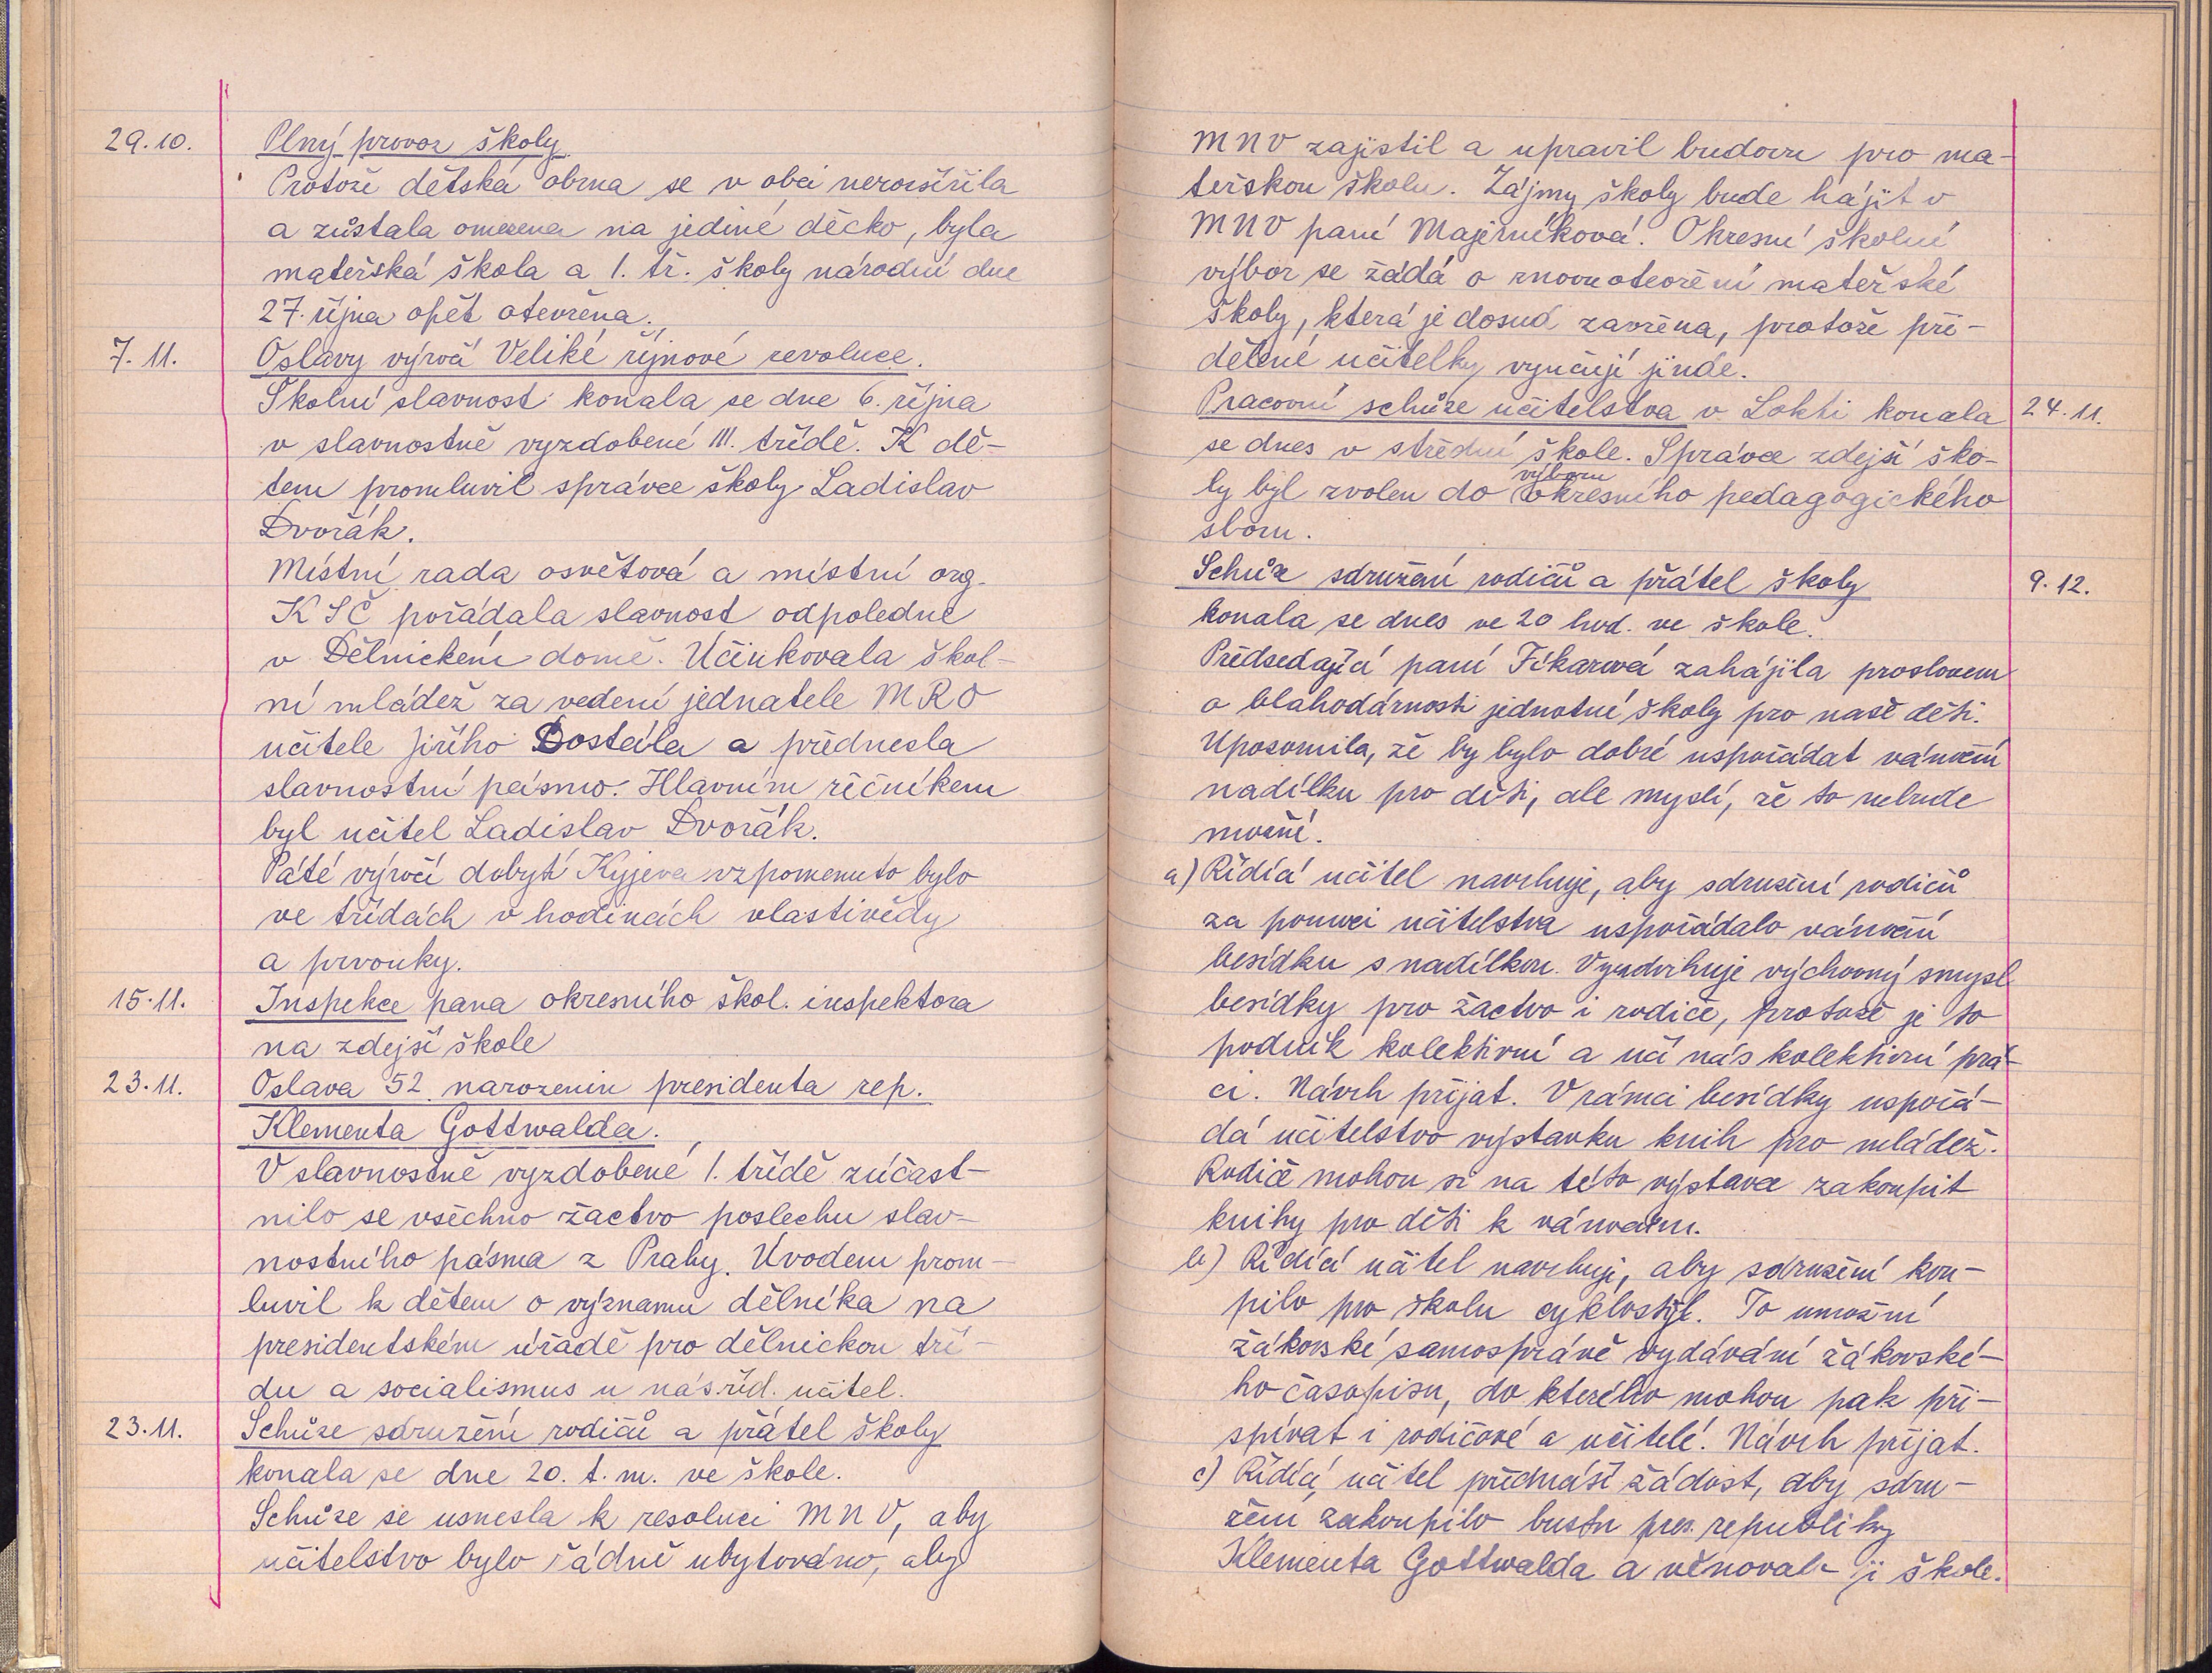 29.10. Plný provoz školy.
Protože dětská obrna se v obci nerozšířila
a zůstala omezena na jediné děcko, byla
mateřská škola a 1. tř. školy národní dne
27. října opět otevřena.
7.11. Oslavy výročí Veliké říjnové revoluce.
Školní slavnost konala se dne 6. října
v slavnostně vyzdobené III. třídě. K dě-
tem promluvil správce školy Ladislav
Dvořák.
Místní rada osvětová a místní org.
KSČ pořádala slavnost odpoledne
v Dělnickém domě. Účinkovala škol-
ní mládež za vedení jednatele MRO
učitele Jiřího Dostála a přednesla
slavnostní pásmo. Hlavním řečníkem
byl učitel Ladislav Dvořák.
Páté výročí dobytí Kyjeva vzpomenuto bylo
ve třídách v hodinách vlastivědy
a prvouky.
15.11. Inspekce pana okresního škol. inspektora
na zdejší škole
23.11. Oslava 52. narozenin presidenta rep.
Klementa Gottwalda.
V slavnostně vyzdobené 1. třídě zúčast-
nilo se všechno žactvo poslechu slav-
nostního pásma z Prahy. Úvodem prom-
luvil k dětem o významu dělníka na
presidentském úřadě pro dělnickou tří-
du a socialismus u nás říd. učitel.
23.11. Schůze sdružení rodičů a přátel školy
konala se dne 20. t. m. ve škole.
Schůze se usnesla k resoluci MNV, aby
učitelstvo bylo řádně ubytováno, aby
MNV zajistil a upravil budovu pro ma-
teřskou školu. Zájmy školy bude hájit v
MNV paní Majerníková. Okresní školní
výbor se žádá o znovuotevření mateřské
školy, která je dosud zavřena, protože při-
dělené učitelky vyučují jinde.
Pracovní schůze učitelstva v Lokti konala 24.11.
se dnes v střední škole. Správce zdejší ško-
ly byl zvolen do výboru okresního pedagogického
sboru.
Schůze sdružení rodičů a přátel školy 9.12.
konala se dnes ve 20 hod. ve škole.
Předsedající paní Fikarová zahájila proslovem
o blahodárnosti jednotné školy pro naše děti.
Uposornila, že by bylo dobré uspořádat vánoční
nadílku pro děti, ale myslí, že to nebude
možné.
a) Řídící učitel navrhuje, aby sdružení rodičů
za pomoci učitelstva uspořádalo vánoční
besídku s nadílkou. Vyzdvihuje výchovný smysl
besídky pro žactvo i rodiče, protože je to
podnik kolektivní a učí nás kolektivní prá-
ci. Návrh přijat. V rámci besídky uspořá-
dá učitelstvo výstavku knih pro mládež.
Rodiče mohou si na této výstavce zakoupit
knihy pro děti k vánocům.
b) Řídící učitel navrhuje, aby sdružení kou-
pilo pro školu cyklostyl. To umožní
žákovské samosprávě vydávání žákovské-
ho časopisu, do kterého mohou pak při-
spívat i rodičové a učitelé. Návrh přijat.
c) Řídící učitel přednáší žádost, aby sdru-
žení zakoupilo bustu pres. republiky
Klementa Gottwalda a věnovalo ji škole.